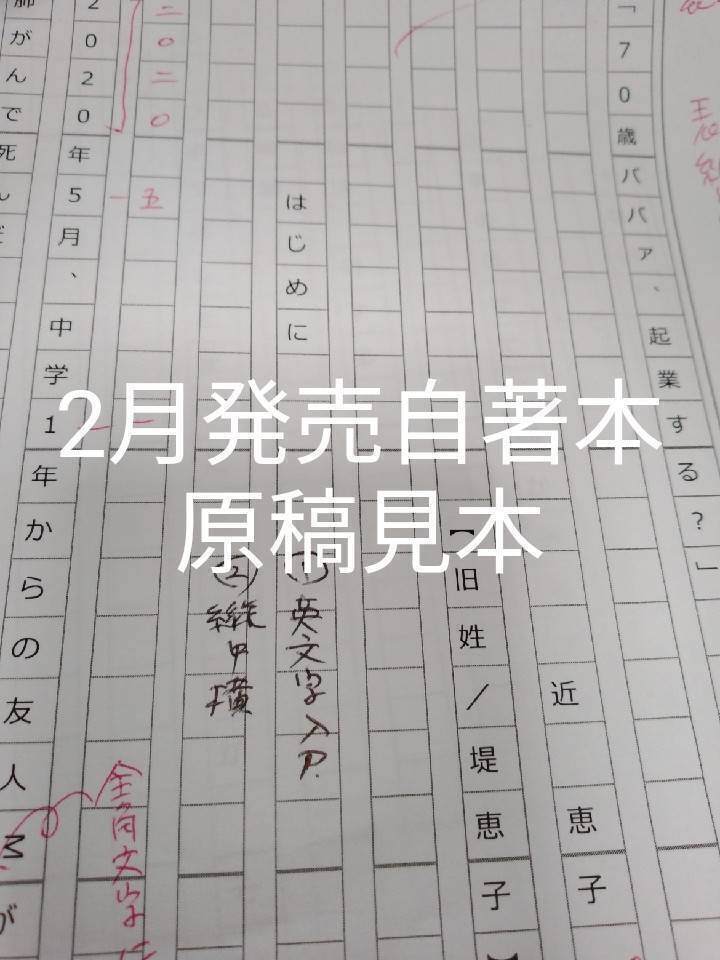 2月発売自著本
原稿見本
「70歳ババァ、起業する?」
近 恵子
【旧姓/堤恵子】
はじめに
①英文字入P.
②縦中横
二〇二〇
五
一
全角文字に
2020年5月、中学1年からの友人Mが
肺がんで死んだ